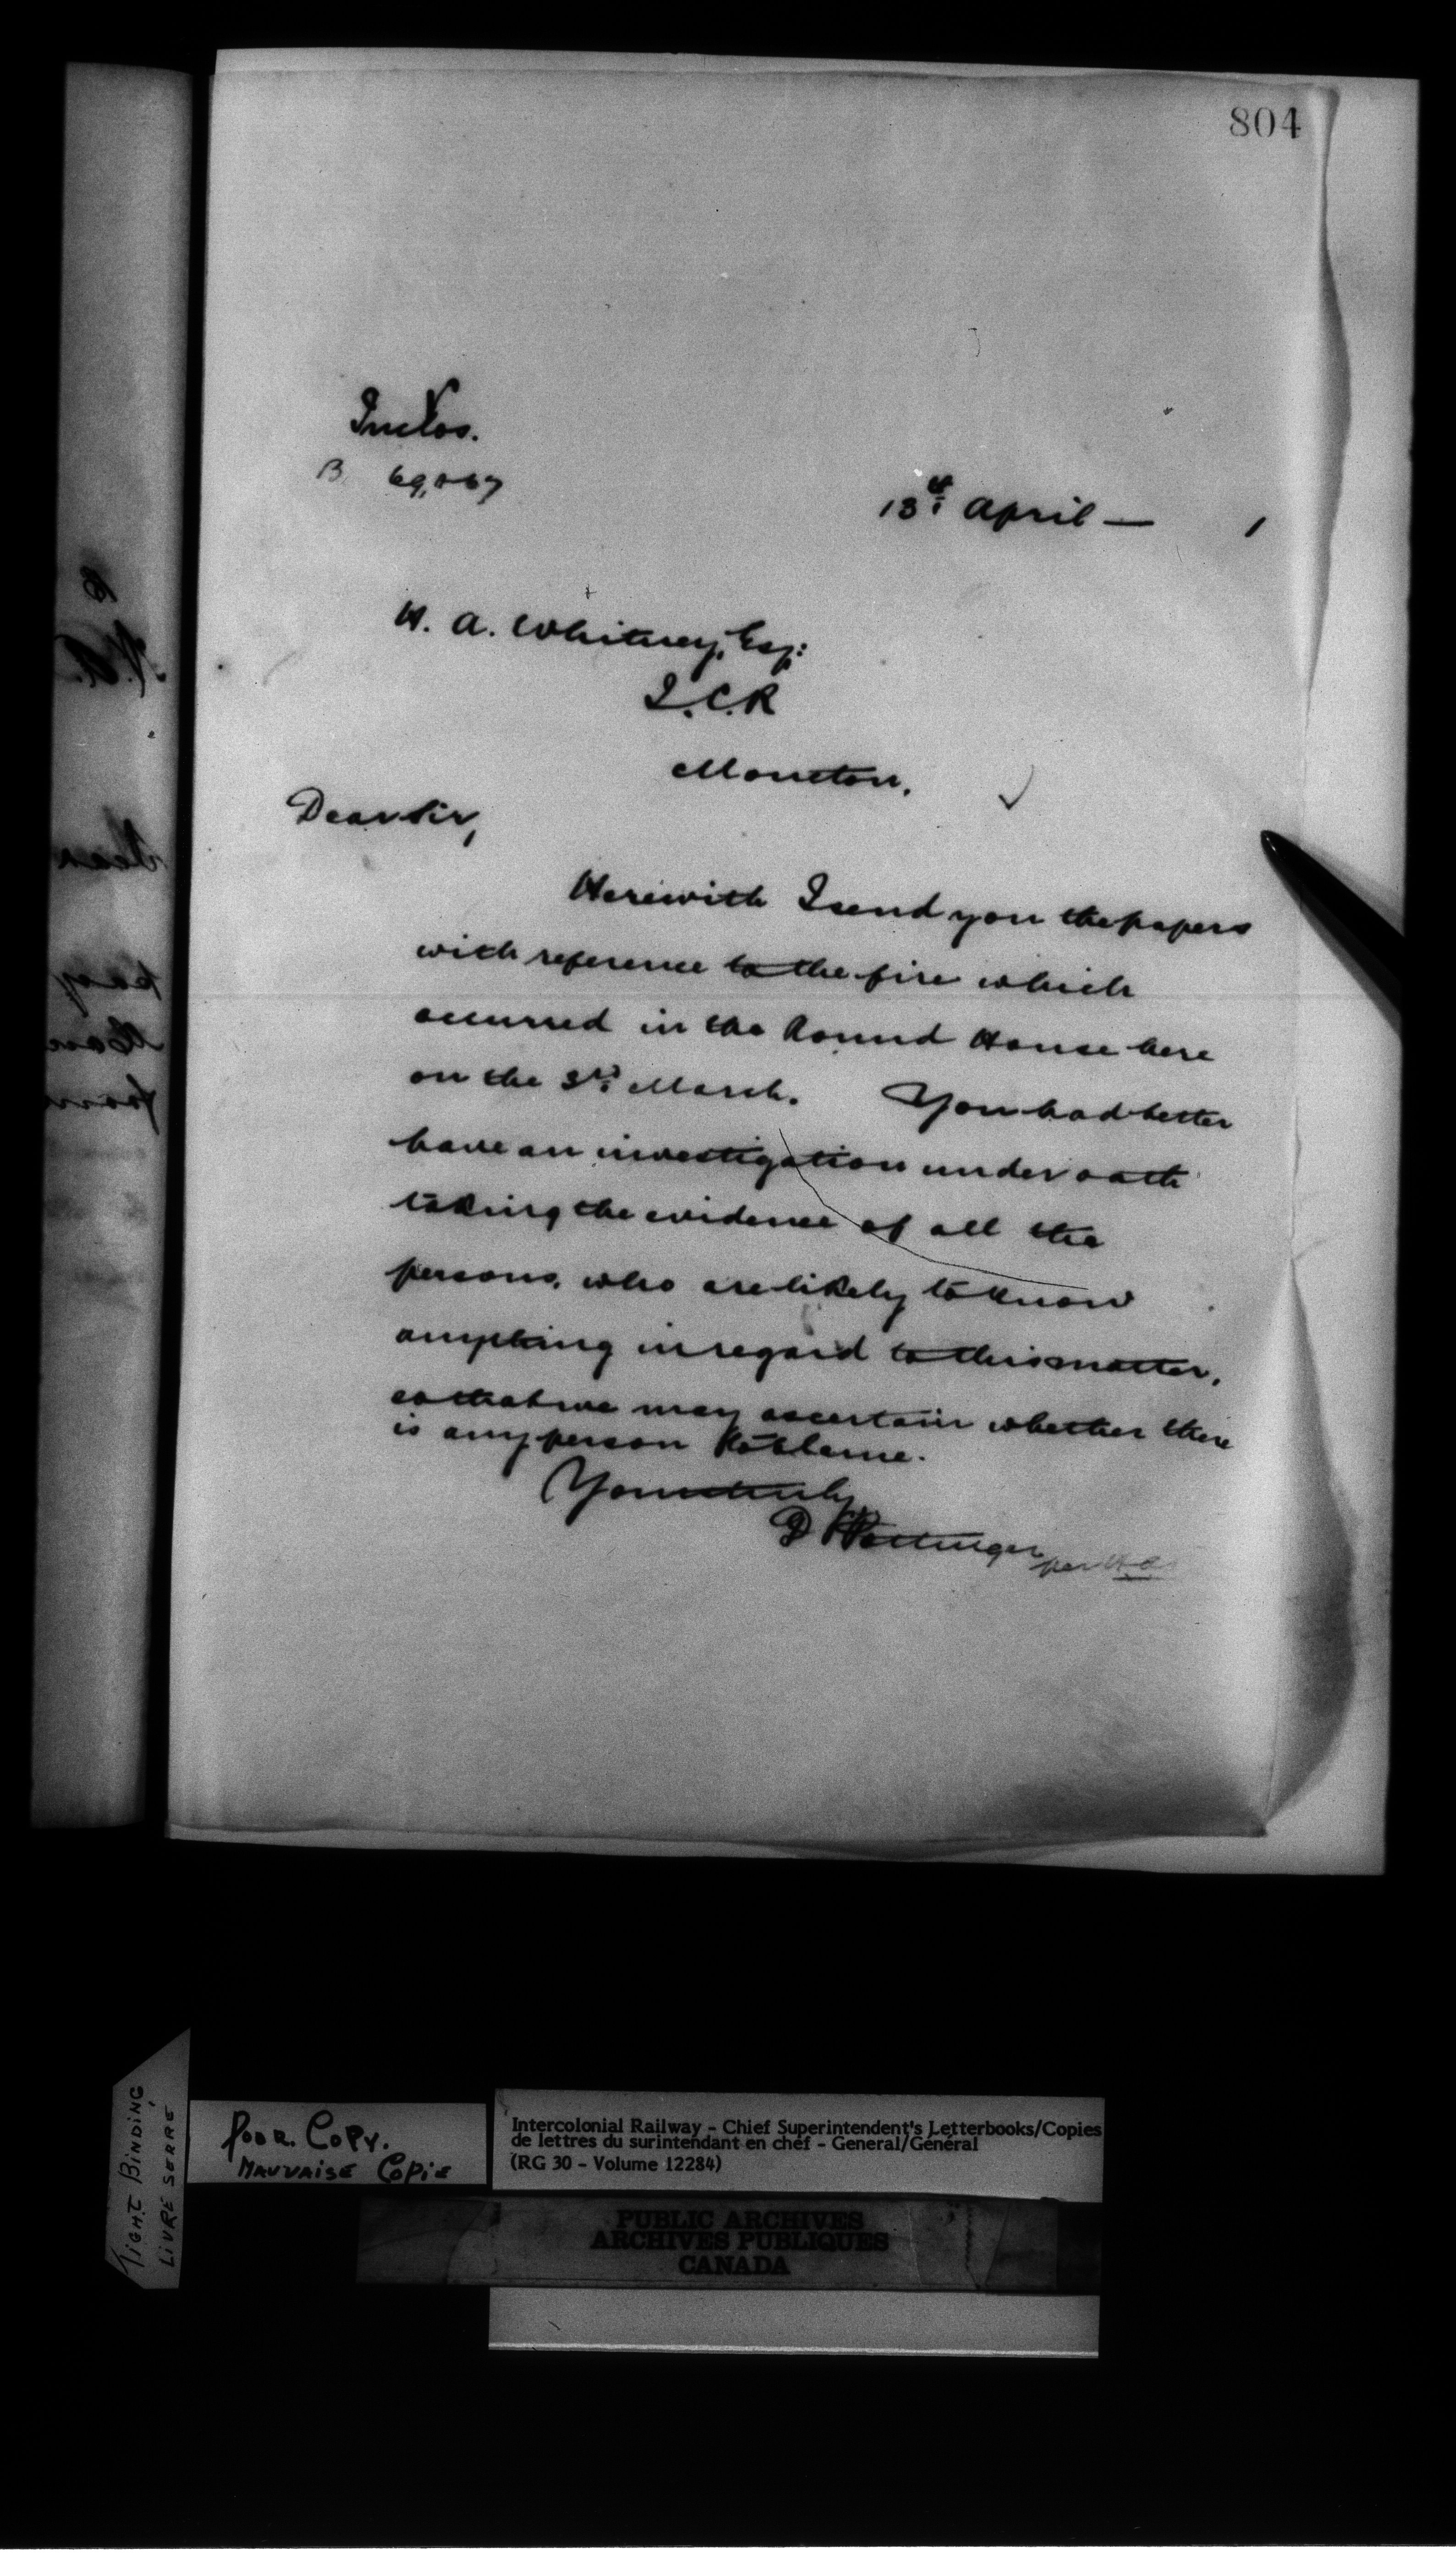 804
Inclos.
B 69,067
13th April — 1
H. A. Whitney, Esq:
I.C.R
Moncton.
Dear Sir,
Herewith I send you the papers
with reference to the fire which
occurred in the Round House here
on the 3rd March. You had better
have an investigation under oath
taking the evidence of all the
persons, who are likely to know
anything in regard to this matter,
so that we may ascertain whether there
is any person to blame.
Yours truly
D Pottinger
per
TIGHT BINDING
LIVRE SERRÉ
POOR COPY.
MAUVAISE COPIE
Intercolonial Railway - Chief Superintendent's Letterbooks/Copies
de lettres du surintendant en chef - General/Général
(RG 30 - Volume 12284)
PUBLIC ARCHIVES
ARCHIVES PUBLIQUES
CANADA